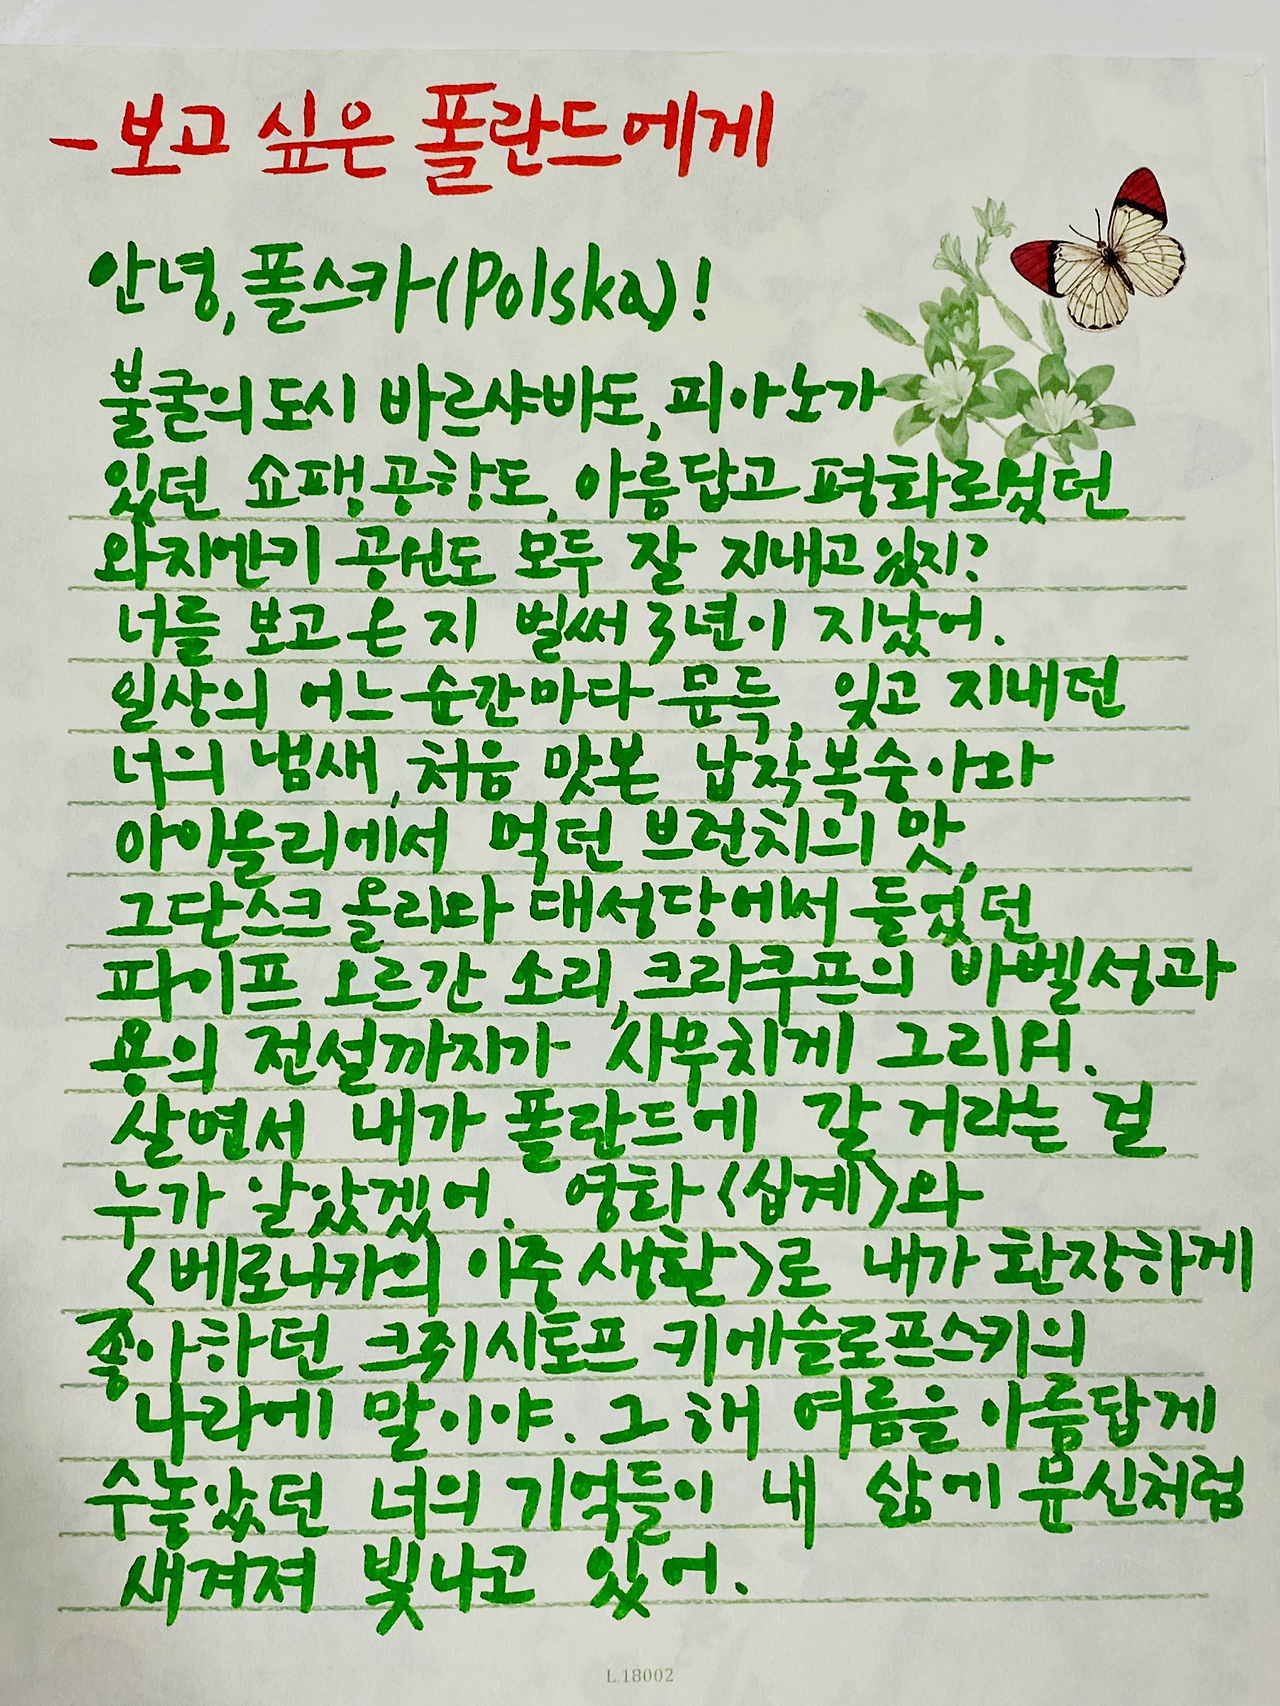 - 보고 싶은 폴란드에게
안녕, 폴스카(Polska)!
불굴의 도시 바르샤바도, 피아노가
있던 쇼팽공항도, 아름답고 평화로웠던
와지엔키 공원도 모두 잘 지내고 있지?
너를 보고 온 지 벌써 3년이 지났어.
일상의 어느 순간마다 문득, 잊고 지내던
너의 냄새, 처음 맛본 납작복숭아와
아이올리에서 먹던 브런치의 맛,
그단스크 올리와 대성당에서 들었던
파이프 오르간 소리, 크라쿠프의 바벨성과
용의 전설까지가 사무치게 그리워.
살면서 내가 폴란드에 갈 거라는 걸
누가 알았겠어. 영화 <십계>와
<베로니카의 이중생활>로 내가 환장하게
좋아하던 크쥐시토프 키에슬로프스키의
나라에 말이야. 그 해 여름을 아름답게
수놓았던 너의 기억들이 내 삶에 문신처럼
새겨져 빛나고 있어.
L.18002